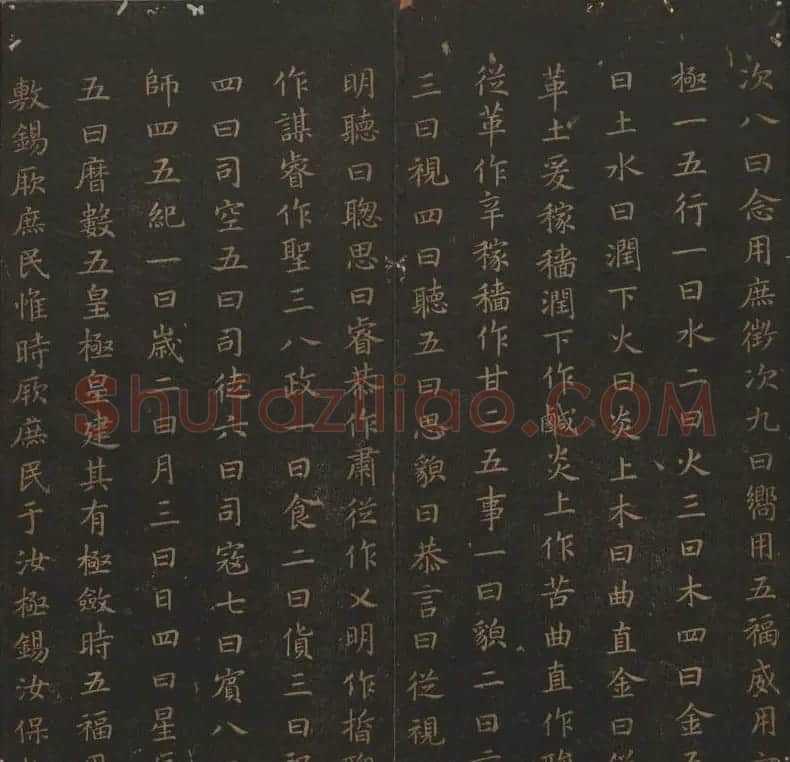 次八曰念用庶徵次九曰嚮用五福威用
極一五行一曰水二曰火三曰木四曰金五
曰土水曰潤下火曰炎上木曰曲直金曰從
革土爰稼穡潤下作鹹炎上作苦曲直作
從革作辛稼穡作甘二五事一曰貌二曰
三曰視四曰聽五曰思貌曰恭言曰從視
明聽曰聰思曰睿恭作肅從作乂明作晢聰
作謀睿作聖三八政一曰食二曰貨三曰
四曰司空五曰司徒六曰司寇七曰賓八
師四五紀一曰歲二曰月三曰日四曰星
五曰曆數五皇極皇建其有極斂時五福
敷錫厥庶民惟時厥庶民于汝極錫汝保
Shufaziliao.COM